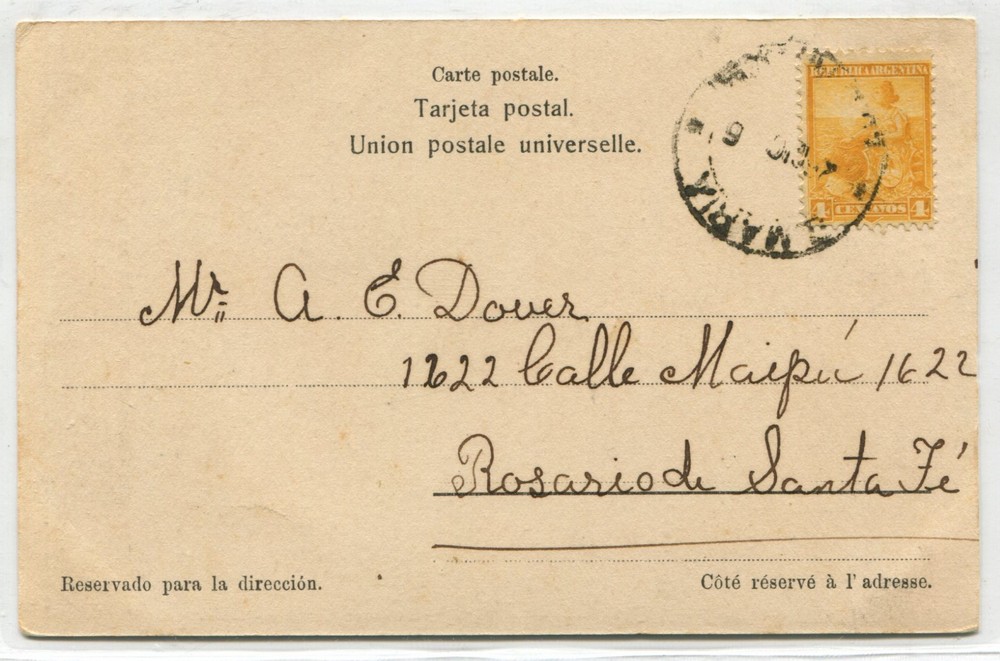 Carte postale.
Tarjeta postal.
Union postale universelle.
REPUBLICA ARGENTINA
4 CENTAVOS 4
9
MARIA
Mr. A. E. Dover
1622 Calle Maipú 1622
Rosario de Santa Fé
Reservado para la dirección.
Côté réservé à l'adresse.